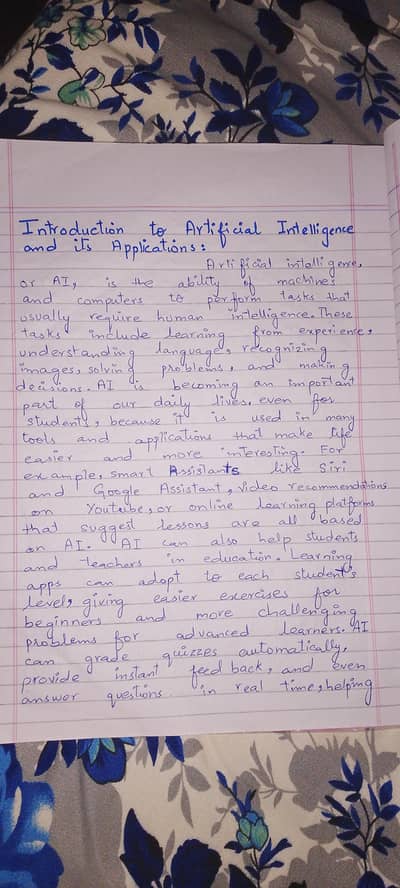 Introduction to Artificial Intelligence
and its Applications:
Artificial intelligence,
or AI, is the ability of machines
and computers to perform tasks that
usually require human intelligence. These
tasks include learning from experience,
understanding language, recognizing
images, solving problems, and making
decisions. AI is becoming an important
part of our daily lives, even for
students, because it is used in many
tools and applications that make life
easier and more interesting. For
example, smart Assistants like Siri
and Google Assistant, video recommendations
on Youtube, or online learning platforms
that suggest lessons are all based
on AI. AI can also help students
and teachers in education. Learning
apps can adopt to each student's
level, giving easier exercises for
beginners and more challenging
problems for advanced learners. AI
can grade quizzes automatically,
provide instant feedback, and even
answer questions in real time, helping